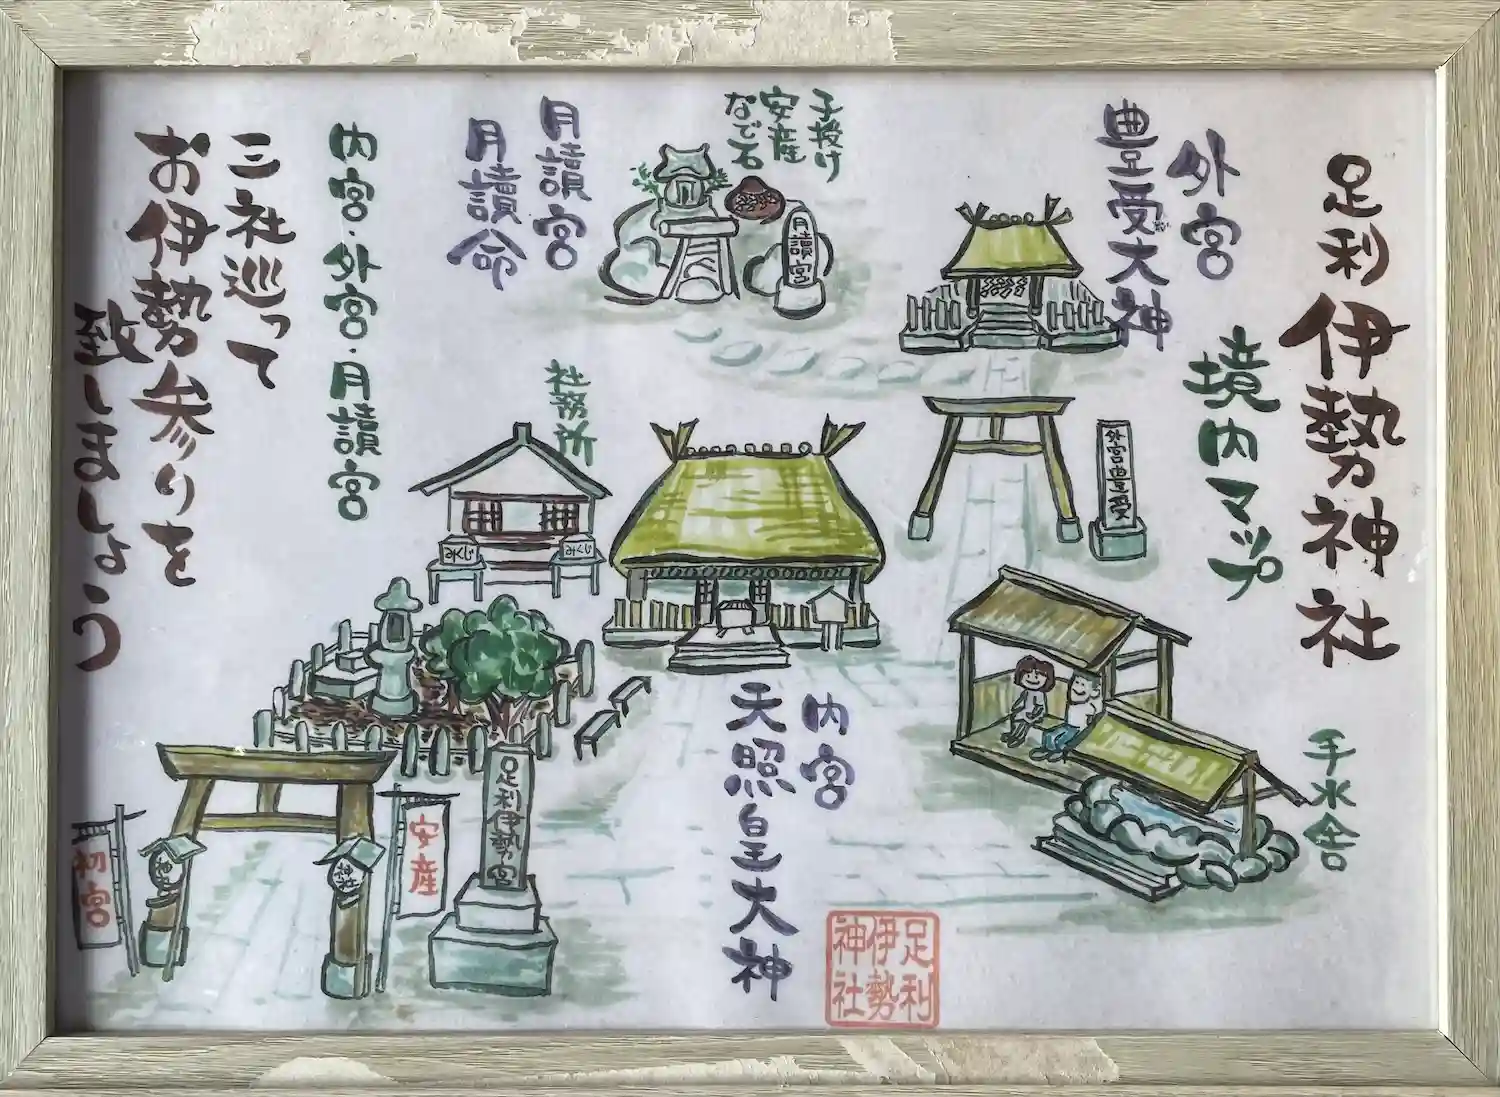 足利伊勢神社
境内マップ
外宮
豊受大神
子授け
安産
なで石
月讀宮
月讀宮
月讀命
内宮・外宮・月讀宮
三社巡って
お伊勢参りを
致しましょう
外宮豊受
社務所
みくじ
みくじ
手水舎
内宮
天照皇大神
足利伊勢宮
安産
神社
神社
初宮
足利
伊勢
神社